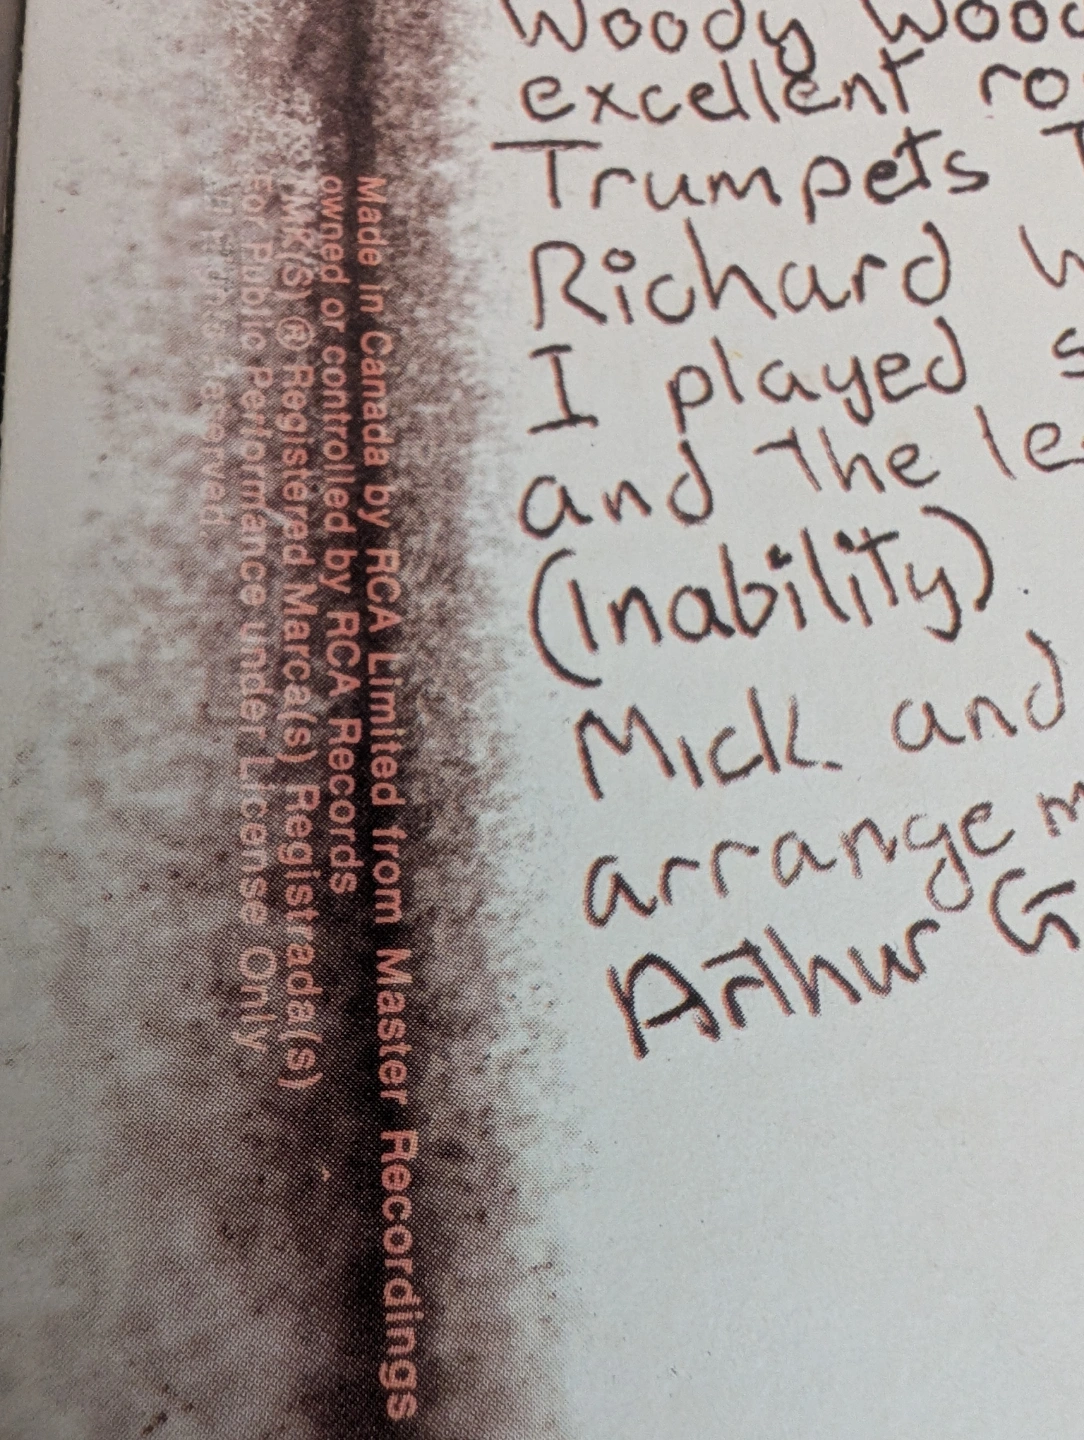 Woody
excellent ro
Trumpets T
Richard W
I played s
and The le
(Inability).
Mick and
arrangem
Arthur G
Made in Canada by RCA Limited from Master Recordings
owned or controlled by RCA Records
TMK(S) ® Registered Marca(s) Registrada(s)
For Public Performance under License Only
All rights reserved.